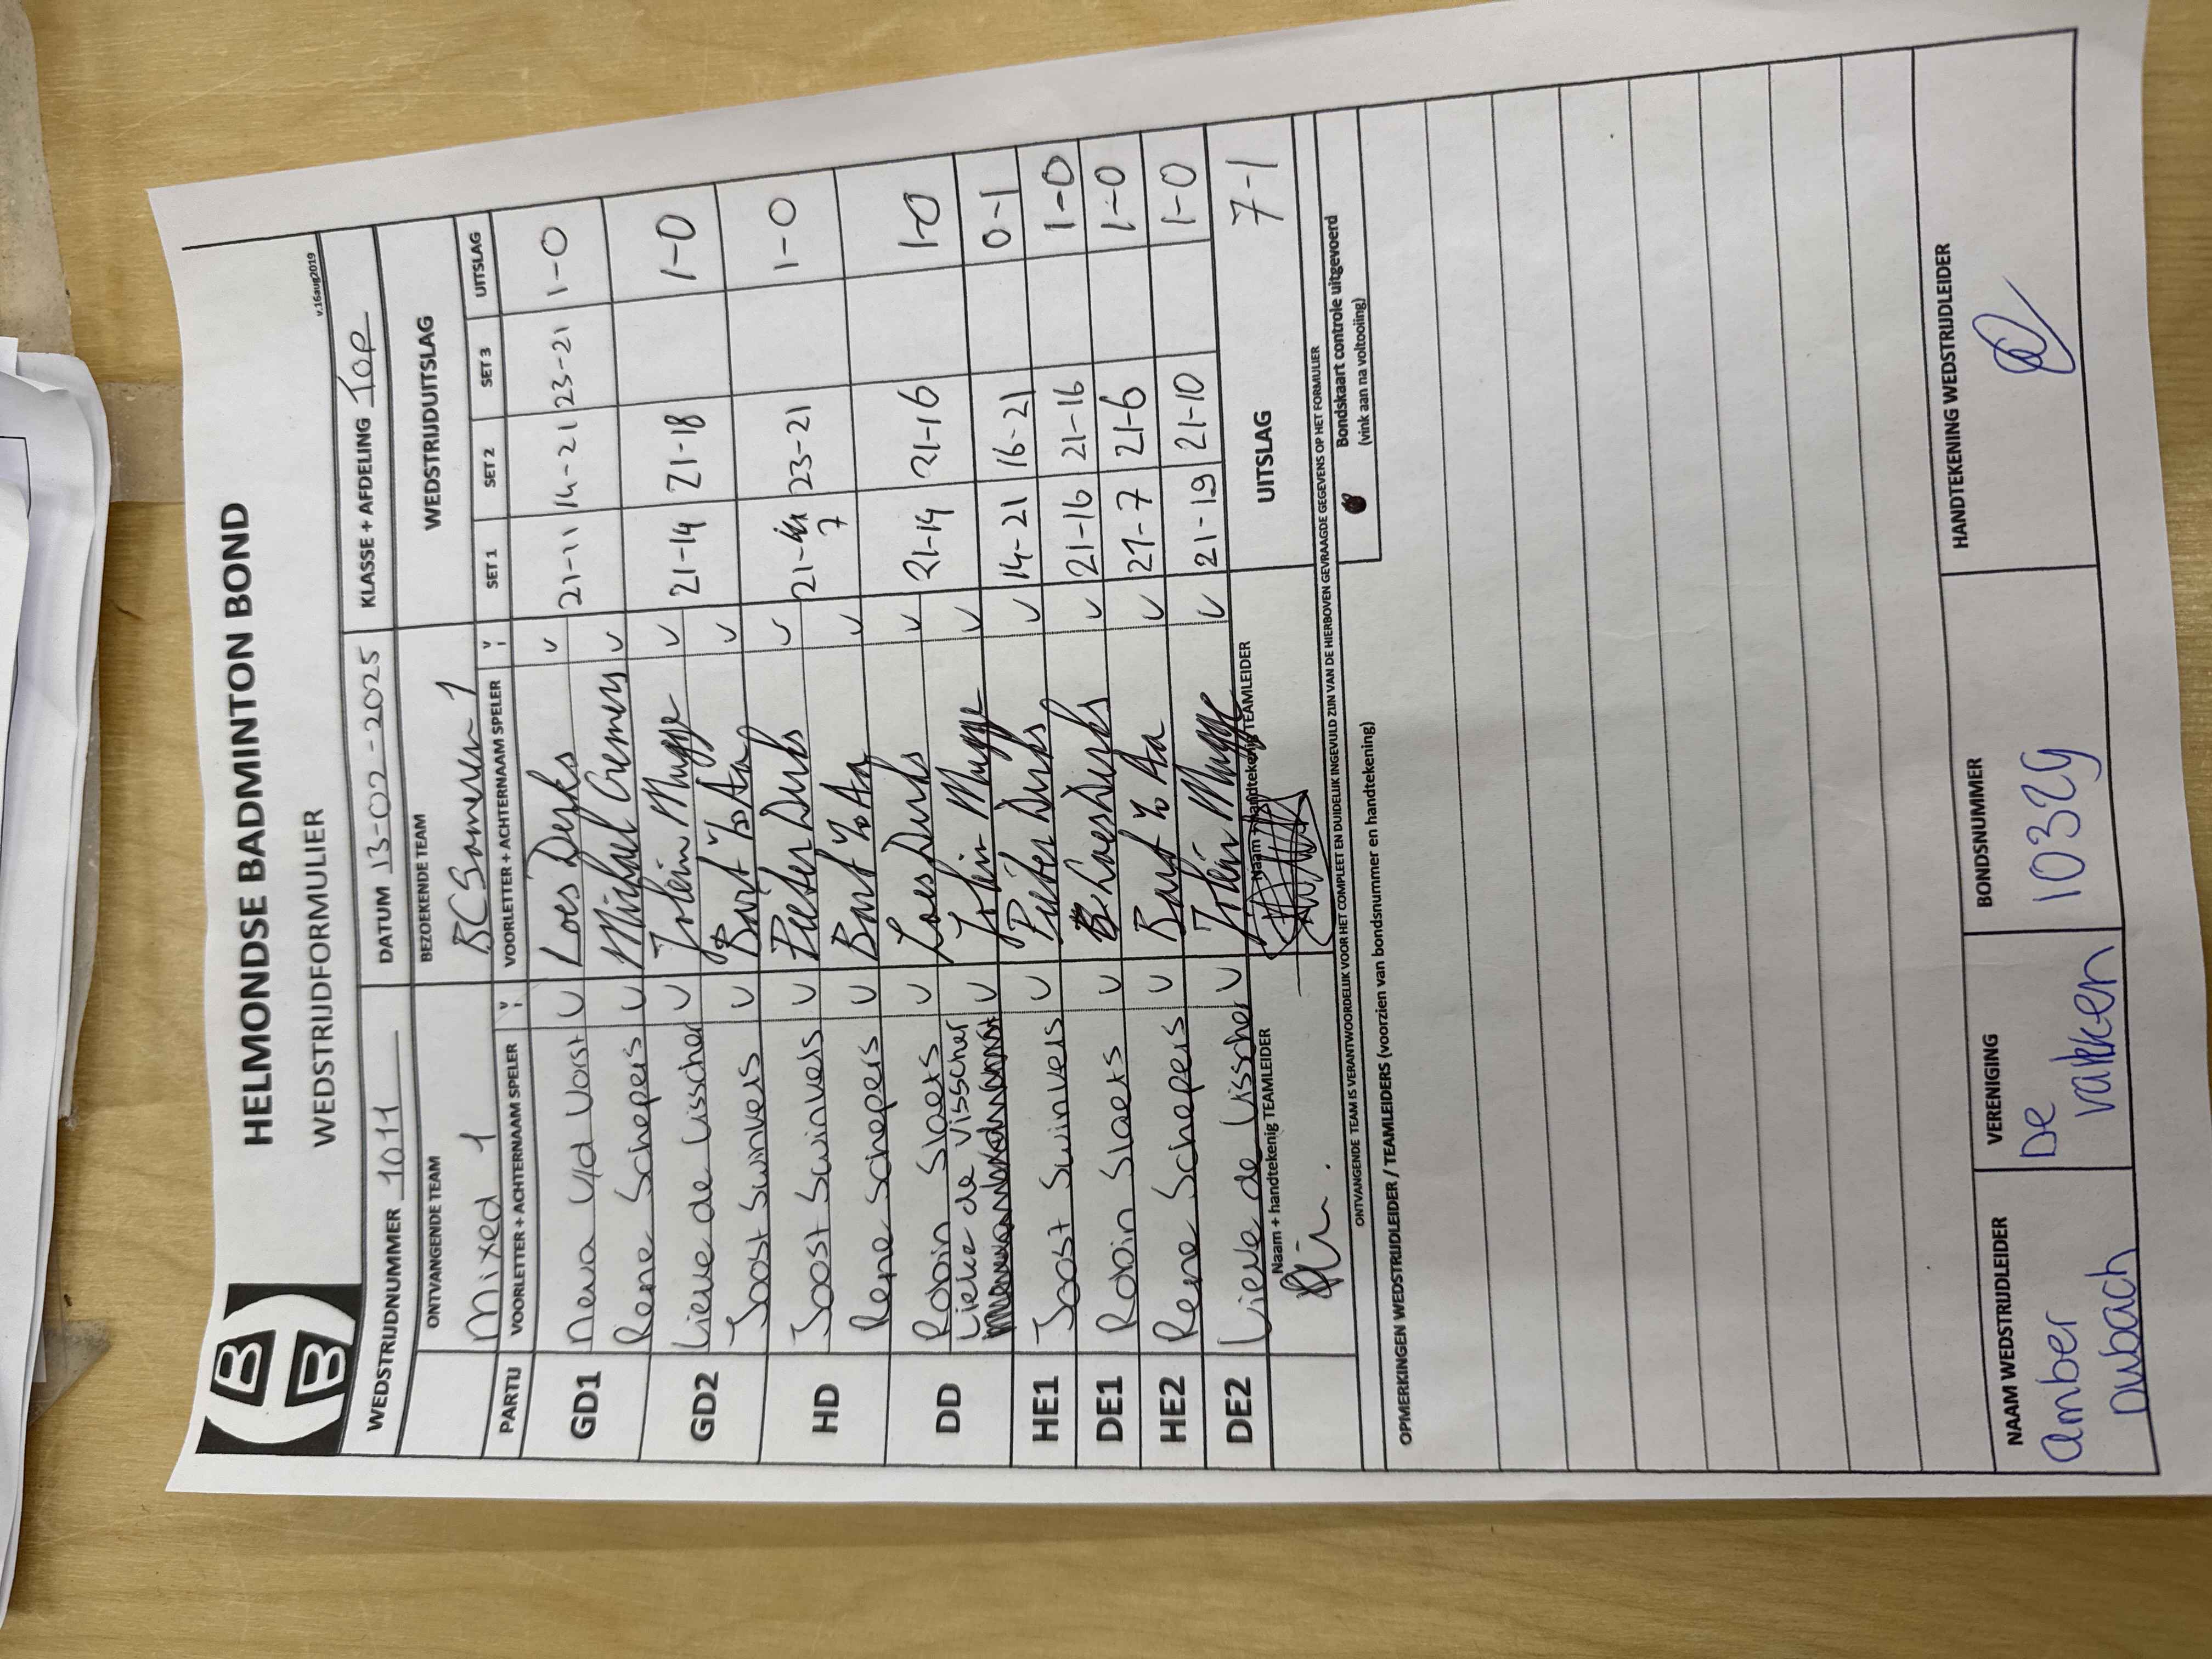 HELMONDSE BADMINTON BOND
WEDSTRIJDFORMULIER
v.16aug2019
WEDSTRIJDNUMMER 1011 DATUM 13-02-2025 KLASSE + AFDELING TOP
ONTVANGENDE TEAM BEZOEKENDE TEAM WEDSTRIJDUITSLAG
Mixed 1 BC Someren 1
PARTIJ VOORLETTER + ACHTERNAAM SPELER V VOORLETTER + ACHTERNAAM SPELER V SET 1 SET 2 SET 3 UITSLAG
GD1 v/d Vorst V Loes Derks V 21-11 14-21 23-21 1-0
Rene Schepers V Michael Cremers V
GD2 Lieve de Visscher V Jolein Mugge V 21-14 21-18 1-0
Joost Swinkels V Bart V
HD Joost Swinkels V Pieter Derks V 21-7 23-21 1-0
Rene Schepers V Bart V
DD Robin Slaets V Loes Derks V 21-14 21-16 1-0
Lieke de Visscher V Jolein Mugge V
HE1 Joost Swinkels V Pieter Derks V 14-21 16-21 0-1
DE1 Robin Slaets V Loes Derks V 21-16 21-16 1-0
HE2 Rene Schepers V Bart V 21-7 21-6 1-0
DE2 Lieve de Visscher V Jolein Mugge V 21-19 21-10 1-0
Naam + handtekenig TEAMLEIDER Naam + handtekenig TEAMLEIDER UITSLAG 7-1
ONTVANGENDE TEAM IS VERANTWOORDELIJK VOOR HET COMPLEET EN DUIDELIJK INGEVULD ZIJN VAN DE HIERBOVEN GEVRAAGDE GEGEVENS OP HET FORMULIER
Bondskaart controle uitgevoerd
(vink aan na voltooiing)
OPMERKINGEN WEDSTRIJDLEIDER / TEAMLEIDERS (voorzien van bondsnummer en handtekening)
NAAM WEDSTRIJDLEIDER VERENIGING BONDSNUMMER HANDTEKENING WEDSTRIJDLEIDER
Amber De 10329
Dubach